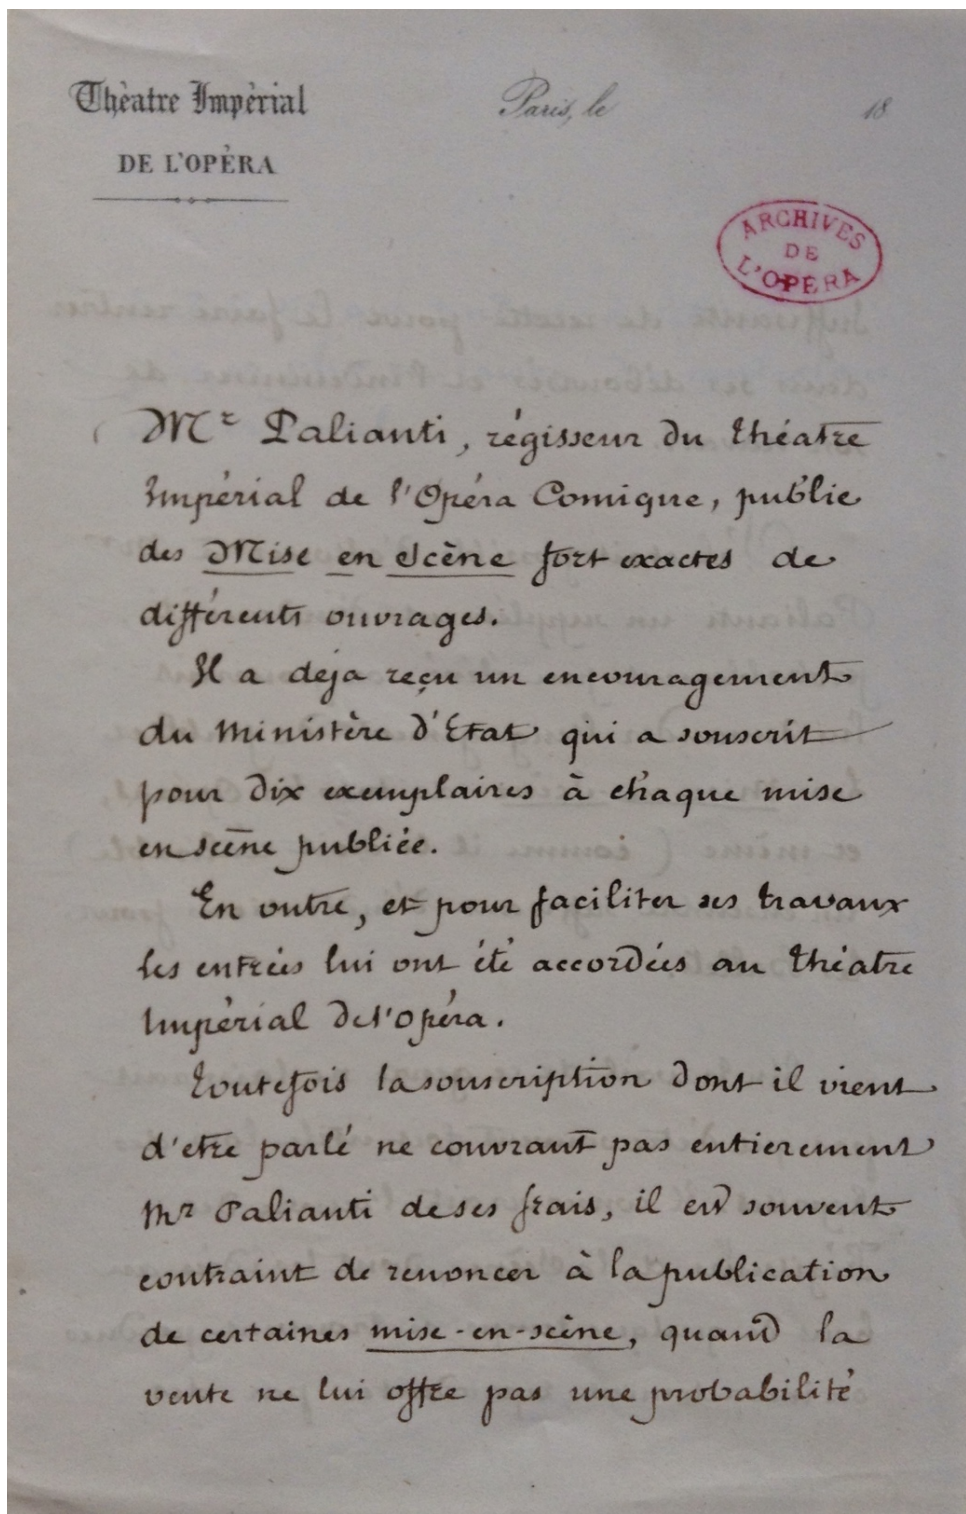 Thèatre Impèrial
DE L'OPÈRA
Paris, le 18
ARCHIVES
DE
L'OPÉRA
Mr Palianti, régisseur du théatre
Impérial de l'Opéra Comique, publie
des Mise en Scène fort exactes de
différents ouvrages.
Il a deja reçu un encouragement
du Ministère d'Etat qui a souscrit
pour dix exemplaires à chaque mise
en scène publiée.
En outre, et pour faciliter ses travaux
les entrées lui ont été accordées au théatre
Impérial de l'opéra.
toutefois la souscription dont il vient
d'etre parlé ne couvrant pas entierement
Mr Palianti de ses frais, il est souvent
contraint de renoncer à la publication
de certaines mise-en-scène, quand la
vente ne lui offre pas une probabilité